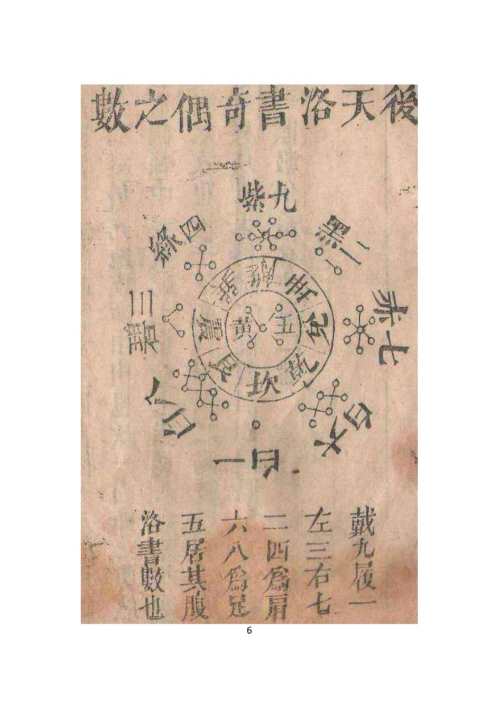 後天洛書奇偶之數
九紫
二黑
七赤
六白
一白
八白
三碧
四綠
離
坤
兌
乾
坎
艮
震
巽
五黃
戴九履一
左三右七
二四為肩
六八為足
五居其腹
洛書數也
6